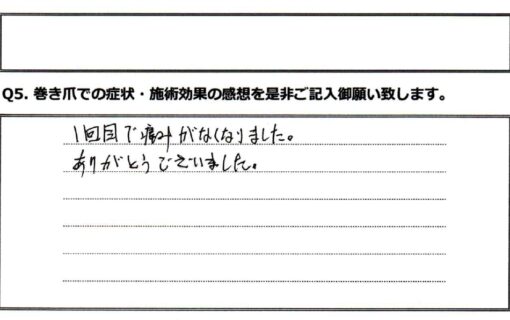 Q5. 巻き爪での症状・施術効果の感想を是非ご記入御願い致します。
1回目で痛みがなくなりました。
ありがとうございました。